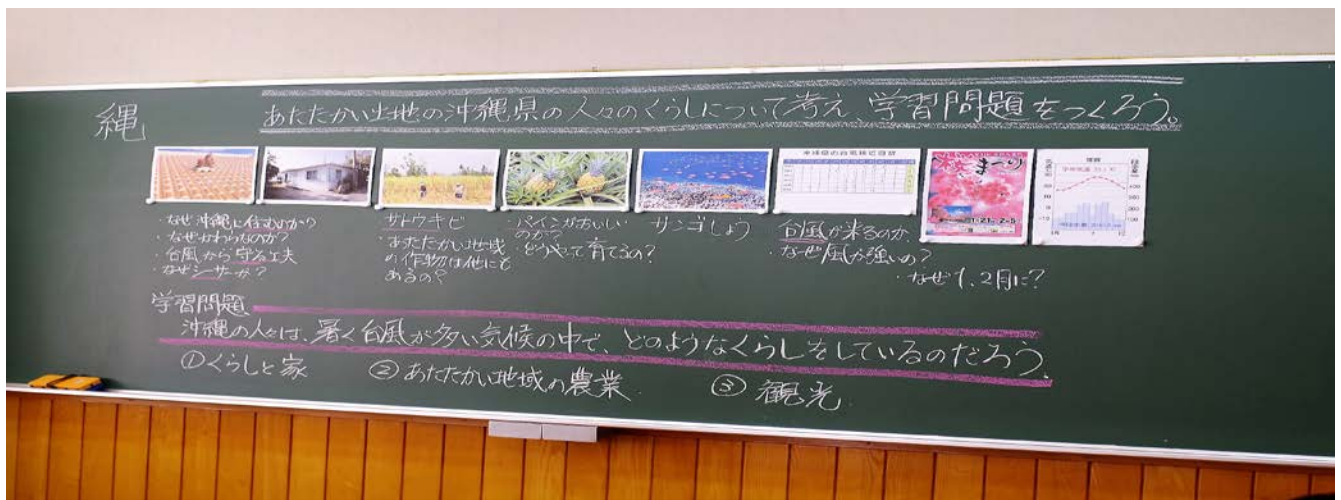 縄
あたたかい土地の沖縄県の人々のくらしについて考え、学習問題をつくろう。
・なぜ沖縄に住むのか?
・なぜかわらなのか?
・台風から守る工夫
・なぜシーサーか?
サトウキビ
・あたたかい地域
の作物は他にも
あるの?
・パインがおいしい
のか?
・どうやって育てるの?
サンゴしょう
台風が来るのか
・なぜ風が強いの?
・なぜ1、2月に?
まつり
1・21 2・5
那覇
学習問題
沖縄の人々は、暑く台風が多い気候の中で、どのようなくらしをしているのだろう。
①くらしと家
②あたたかい地域の農業
③観光